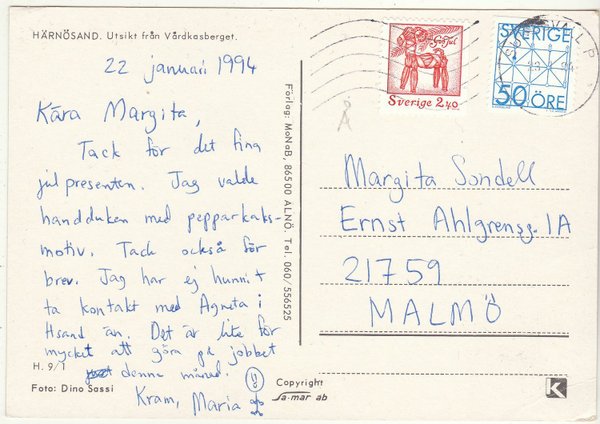 HÄRNÖSAND. Utsikt från Vårdkasberget.
22 januari 1994
Kära Margita,
Tack för det fina
julpresenten. Jag valde
handduken med pepparkaks-
motiv. Tack också för
brev. Jag har ej hunnit
ta kontakt med Agneta i
Hsand än. Det är lite för
mycket att göra på jobbet
denna månad.
Kram, Maria
H. 9/1
Foto: Dino Sassi
Förlag: MoNaB, 86500 ALNÖ. Tel. 060/556525
Copyright
sa-mar ab
God Jul
Sverige 2,40
SVERIGE
50 ÖRE
Å
Margita Sundell
Ernst Ahlgrensg. 1A
21759
MALMÖ
K